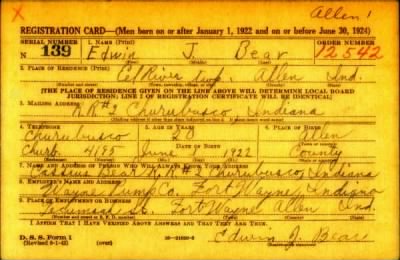 Allen 1
REGISTRATION CARD—(Men born on or after January 1, 1922 and on or before June 30, 1924)
SERIAL NUMBER 1. NAME (Print) ORDER NUMBER
N 139 Edwin J. Bear 12542
2. PLACE OF RESIDENCE (Print)
Eel River Twp. Allen Ind.
[THE PLACE OF RESIDENCE GIVEN ON THE LINE ABOVE WILL DETERMINE LOCAL BOARD
JURISDICTION; LINE 2 OF REGISTRATION CERTIFICATE WILL BE IDENTICAL]
3. MAILING ADDRESS
R.R.#2 Churubusco Indiana
4. TELEPHONE 5. AGE IN YEARS 6. PLACE OF BIRTH
Churubusco 20 Allen
DATE OF BIRTH
Churb. 4195 June 1922 County
7. NAME AND ADDRESS OF PERSON WHO WILL ALWAYS KNOW YOUR ADDRESS
Cassius Bear R.R.#2 Churubusco, Indiana
8. EMPLOYER'S NAME AND ADDRESS
Wayne Pump Co. Fort Wayne, Indiana
9. PLACE OF EMPLOYMENT OR BUSINESS
Fort Wayne Allen Ind.
I AFFIRM THAT I HAVE VERIFIED ABOVE ANSWERS AND THAT THEY ARE TRUE.
D. S. S. Form 1
(Revised 6-1-42) (over) Edwin J. Bear